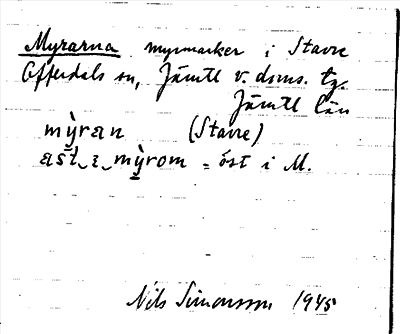 Myrarna myrmarker i Stavre
Offerdals sn, Jämtl v. doms. tg.
Jämtl län
mỳran (Stavre)
ast a mỳrom = öst i M.
Nils Simonsson 1945